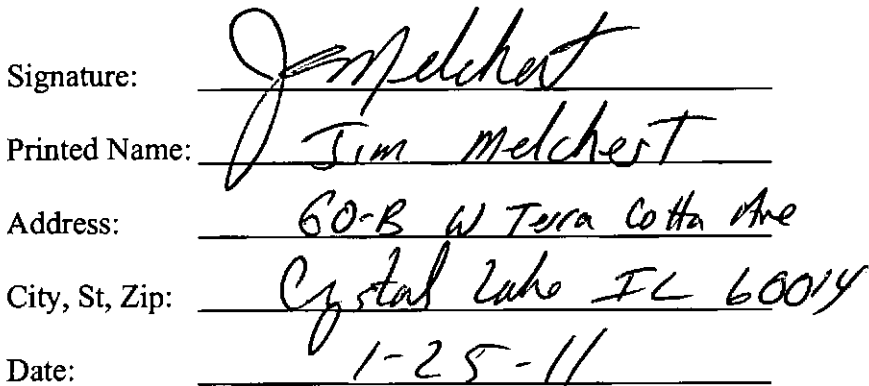 Signature: Jim Melchert
Printed Name: Jim Melchert
Address: 60-B W Terra Cotta Ave
City, St, Zip: Crystal Lake IL 60014
Date: 1-25-11